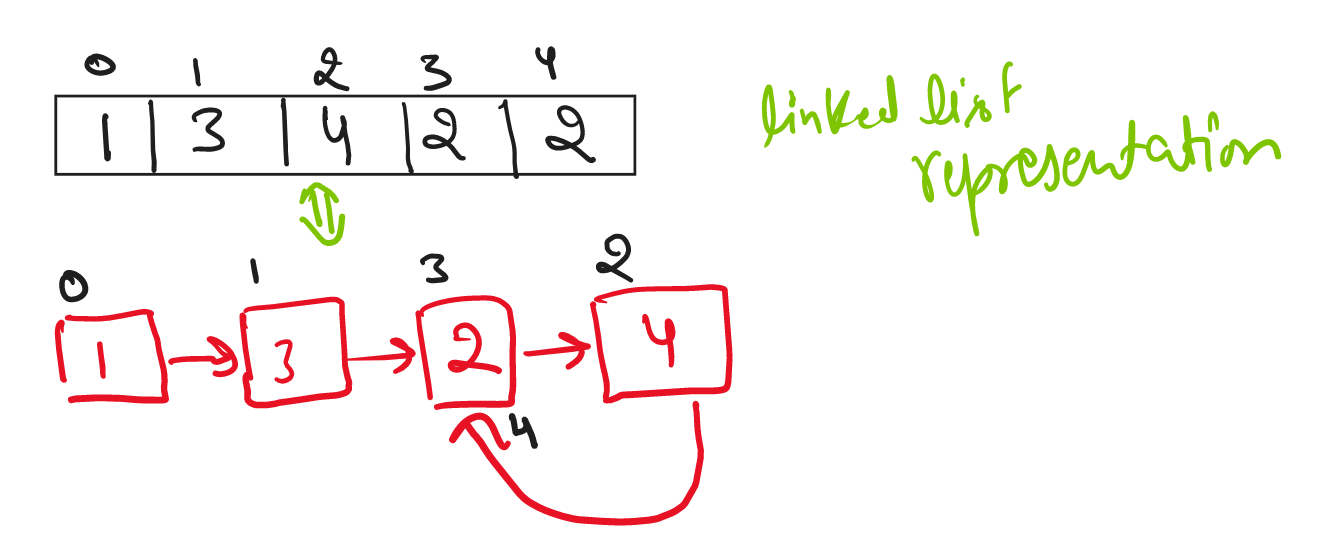 0 1 2 3 4
1 3 4 2 2
linked list
representation
0 1 3 2
1 3 2 4
4